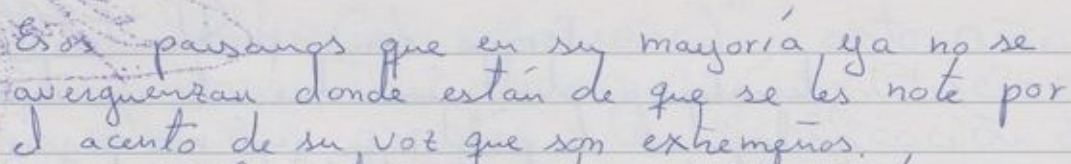 Esos paisanos que en su mayoría, ya no se
averguenzan donde están de que se les note por
el acento de su voz que son extremeños.